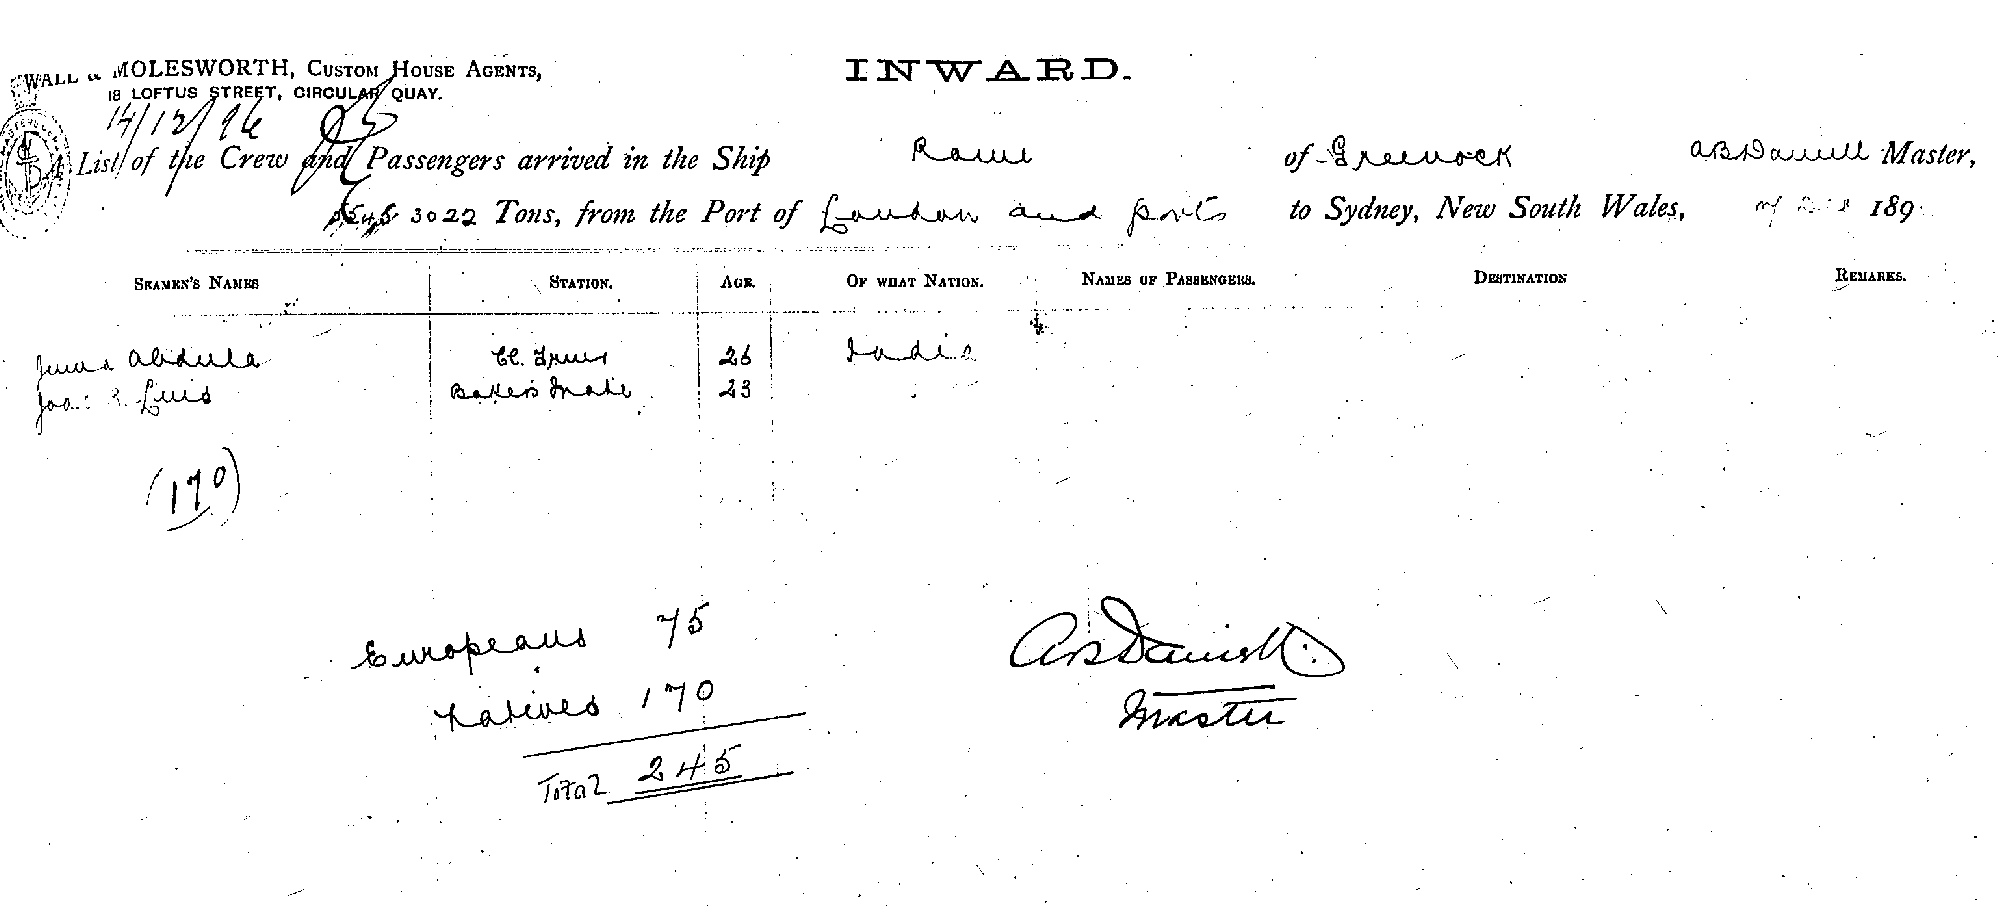 WALL & MOLESWORTH, CUSTOM HOUSE AGENTS,
18 LOFTUS STREET, CIRCULAR QUAY.
INWARD.
14/12/96
A List of the Crew and Passengers arrived in the Ship Rome of Greenock A B Daniell Master,
3022 Tons, from the Port of London and ports to Sydney, New South Wales, of 189
SEAMEN'S NAMES STATION. AGE. OF WHAT NATION. NAMES OF PASSENGERS. DESTINATION REMARKS.
Juma Abdula 26 India
Luis Baker's Mate 23
(170)
Europeans 75
Natives 170
Total 245
A B Daniell
Master